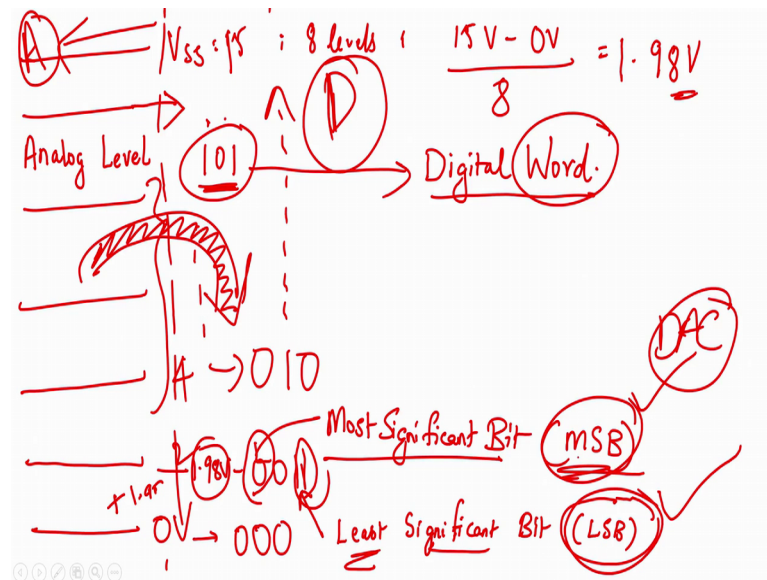 A Vss = 15 ; 8 levels ; 15V - 0V / 8 = 1.98V
D
Analog Level 101 Digital Word.
4 → 010
DAC
Most Significant Bit (MSB)
1.98V - 001
0 → 000 Least Significant Bit (LSB)